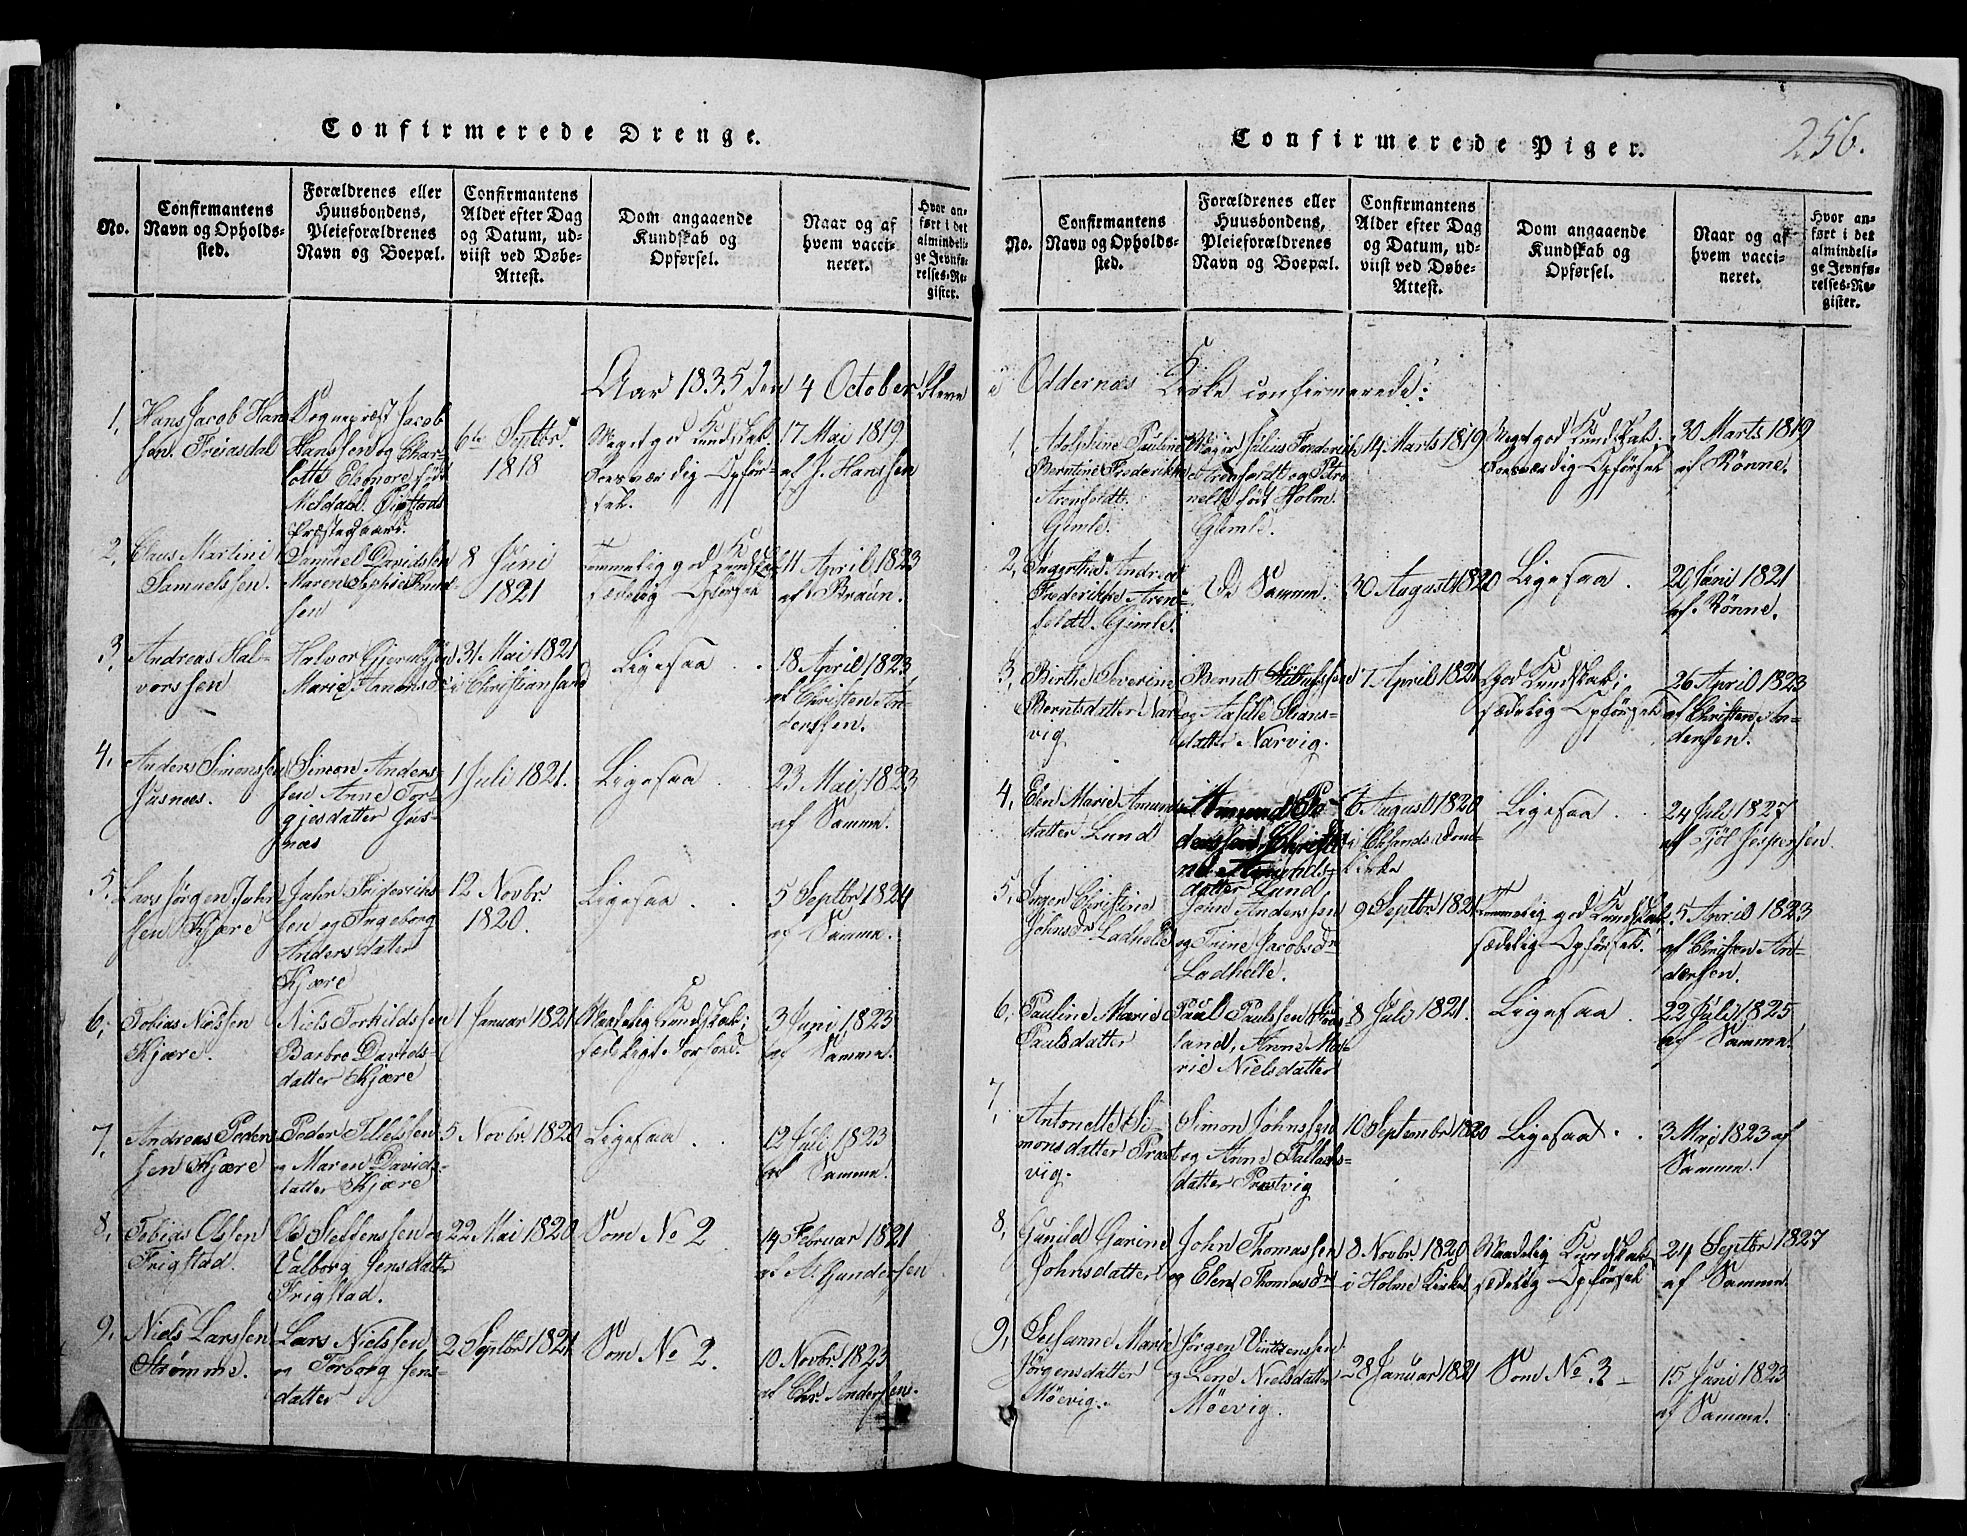 Confirmerede Drenge.
No.
Confirmantens
Navn og Opholds-
sted.
Forældrenes eller
Huusbondens,
Pleieforældrenes
Navn og Boepæl.
Confirmantens
Alder efter Dag
og Datum, ud-
viist ved Døbe-
Attest.
Dom angaaende
Kundskab og
Opførsel.
Naar og af
hvem vacci-
neret.
Hvor an-
ført i det
almindeli-
ge Jevnfø-
relses-Re-
gister.
Aar 1835 den 4 October bleve
1, Hans Jacob Han
sen. Frigsdal
Sognepræst Jacob
Hanssen og Char-
lotte Eleonore født
Meldaal.
Præstegaard.
6te Septbr.
1818
Meget god Kundskab.
Roesværdig Opfør-
sel.
17 Mai 1819
af J. Hanssen
2, Claus Martini
Samuelssen.
Samuel Davidssen
Maren Sophie Knud-
sen
8 Juni
1821
Temmelig god Kundskab
sædelig Opførsel
11 April 1823
af Braun.
3, Andreas Hal-
vorssen
Halvor Gjeruldsen
Marie Aanonsdr
31 Mai 1821
i Christiansand
Ligesaa
18 April 1823
af Christen An-
derssen.
4, Anders Simonssen
Justnæs.
Simon Anders-
sen Anne Tor-
gjesdatter Jus-
næs
1 Juli 1821.
Ligesaa
23 Mai 1823
af Samme.
5, Lars Jørgen Juhr
sen Kjære
Juhr Frideriks-
sen og Ingeborg
Andersdatter
Kjære
12 Novbr.
1820.
Ligesaa
5 Septbr 1824
af Samme.
6, Tobias Nielssen
Kjære.
Niels Torkildssen
Barbre Davids-
datter Kjære
1 Januar 1821
Maadelig Kundskab;
sædeligt Forhold.
3 Juni 1823
af Samme.
7, Andreas Peder
sen Kjære
Peder Tellefssen
og Maren Davids-
datter Kjære
5 Novbr 1820
Ligesaa
12 Juli 1823
af Samme.
8, Tobias Olssen
Frigstad.
Ole Steffenssen og
Valborg Jensdatter
Frigstad.
22 Mai 1820
Som No 2
14 Februar 1821
af A. Gundersen
9, Niels Larssen
Strømme.
Lars Nielssen
og Torborg Jens-
datter
2 Septbr 1821.
Som No 2.
10 Novbr 1823
af Chr. Andersen.
Confirmerede Piger.
256.
No.
Confirmantens
Navn og Opholds-
sted.
Forældrenes eller
Huusbondens,
Pleieforældrenes
Navn og Boepæl.
Confirmantens
Alder efter Dag
og Datum, ud-
viist ved Døbe-
Attest.
Dom angaaende
Kundskab og
Opførsel.
Naar og af
hvem vacci-
neret.
Hvor an-
ført i det
almindeli-
ge Jevnfø-
relses-Re-
gister.
i Oddernæs Kirke confirmerede:
1, Adolphine Pauline
Berntine Frederikke
Arenfeldt.
Gimle.
Major Julius Frederik
Arenfeldt og Petro
nelle født Holm.
Gimle.
14 Marts 1819
Meget god Kundskab.
Roesværdig Opførsel
30 Marts 1819
af Rønne.
2, Ingertha Andrea
Frederikke Aren-
feldt. Gimle.
De Samme.
30 August 1820
Ligesaa.
20 Juni 1821
af Rønne.
3, Birthe Severine
Berntsdatter Nar
vig
Bernt
og Aasille Hans-
datter Narvig.
7 April 1821
God Kundskab;
sædelig Opførsel
26 April 1823
af Christen An-
dersen.
4, Elen Marie Amunds
datter Lund
Amund Pe-
derssen, Christi-
ne
datter Lund
6 August 1820
i Chrsands Dom-
kirke
Ligesaa
24 Juli 1827
af Fjøl Jespersen
5, Inger Christine
Johnsdr Ladhelle
John Anderssen
og Trine Jacobsdr
Ladhelle.
9 Septbr 1821
Temmelig god Kundskab
sædelig Opførsel.
5 April 1823
af Christen An-
dersen.
6, Pauline Marie
Paulsdatter
Paul Paulssen
land, Anne Ma-
rie Nielsdatter
8 Juli 1821.
Ligesaa
22 Juli 1825
af Samme.
7, Antonette Si-
monsdatter Præst
vig.
Simon Johnssen
og Anne Tallaks-
datter Præstvig
10 Septembr 1820
Ligesaa
3 Mai 1823 af
Samme.
8, Gunild Garine
Johnsdatter
John Thomassen
og Elen Thomasdr
8 Novbr 1820
i Holme Kirke
Maadelig Kundskab
sædelig Opførsel
24 Septbr 1827
af Samme.
9, Susanne Marie
Jørgensdatter
Møevig.
Jørgen Vintzenssen
og Lene Nielsdatter
Møevig.
28 Januar 1821
Som No 3
15 Juni 1823
af Samme.